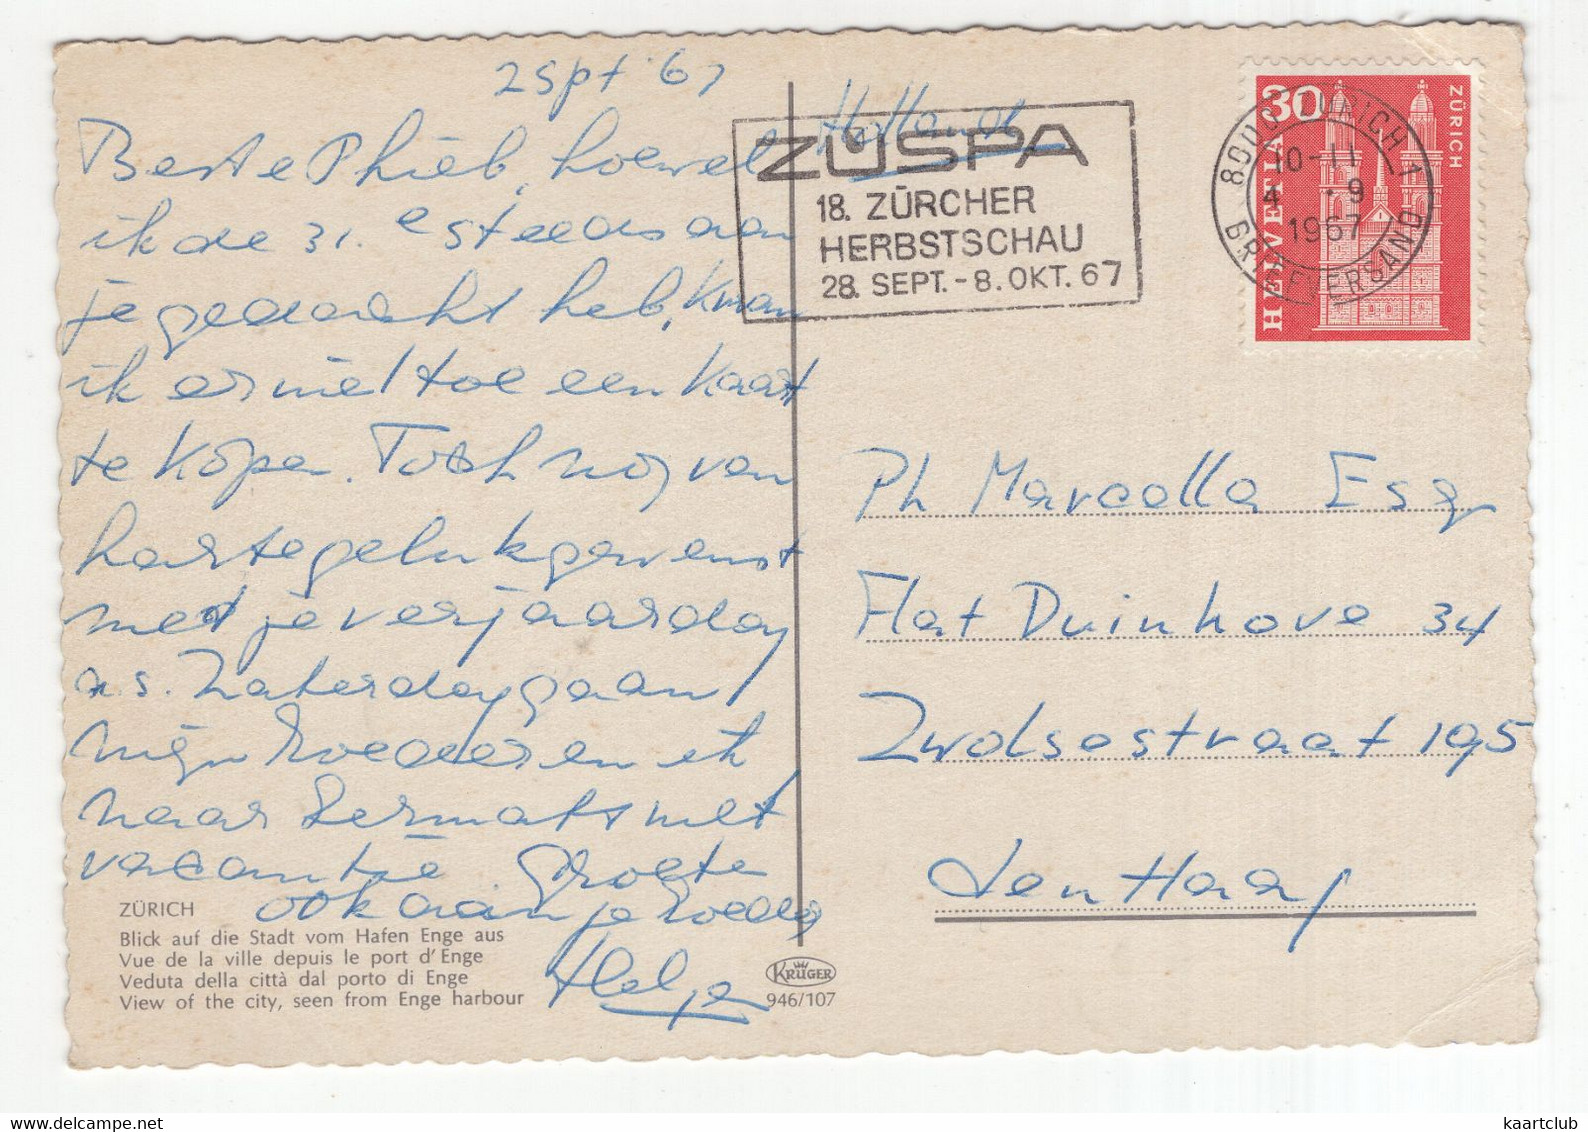 2 spt '67
Beste Phieb, hoewel
ik de 31.e steeds aan
je gedacht heb, kwam
ik er niet toe een kaart
te kopen. Toch nog van
harte gelukgewenst
met je verjaardag
a.s. Zaterdag gaan
mijn broeder en ik
naar Zermatt met
vacantie Groete
ook aan je broeder
Helga
ZÜRICH
Blick auf die Stadt vom Hafen Enge aus
Vue de la ville depuis le port d'Enge
Veduta della città dal porto di Enge
View of the city, seen from Enge harbour
KRÜGER
946/107
Holland
ZÜSPA
18. ZÜRCHER
HERBSTSCHAU
28. SEPT. - 8. OKT. 67
30
ZÜRICH
HELVETIA
ZÜRICH 1
10-11
4 .9
1967
BRIEFVERSAND
Ph Marcella Esq
Flat Duinhove 34
Zwolsestraat 195
den Haag
kaartclub